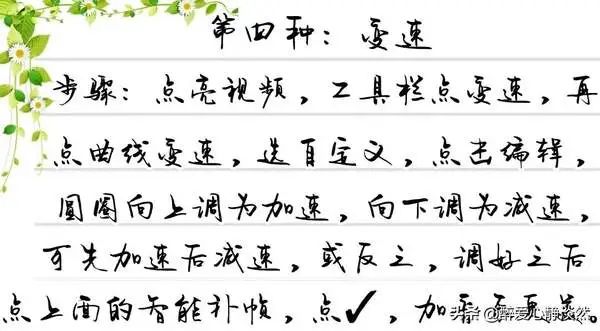 第四种：变速
步骤：点亮视频，工具栏点变速，再
点曲线变速，选自定义，点击编辑，
圆圈向上调为加速，向下调为减速，
可先加速后减速，或反之，调好之后
点上面的智能补帧，点✓，加
头条 @醉爱心静悠然